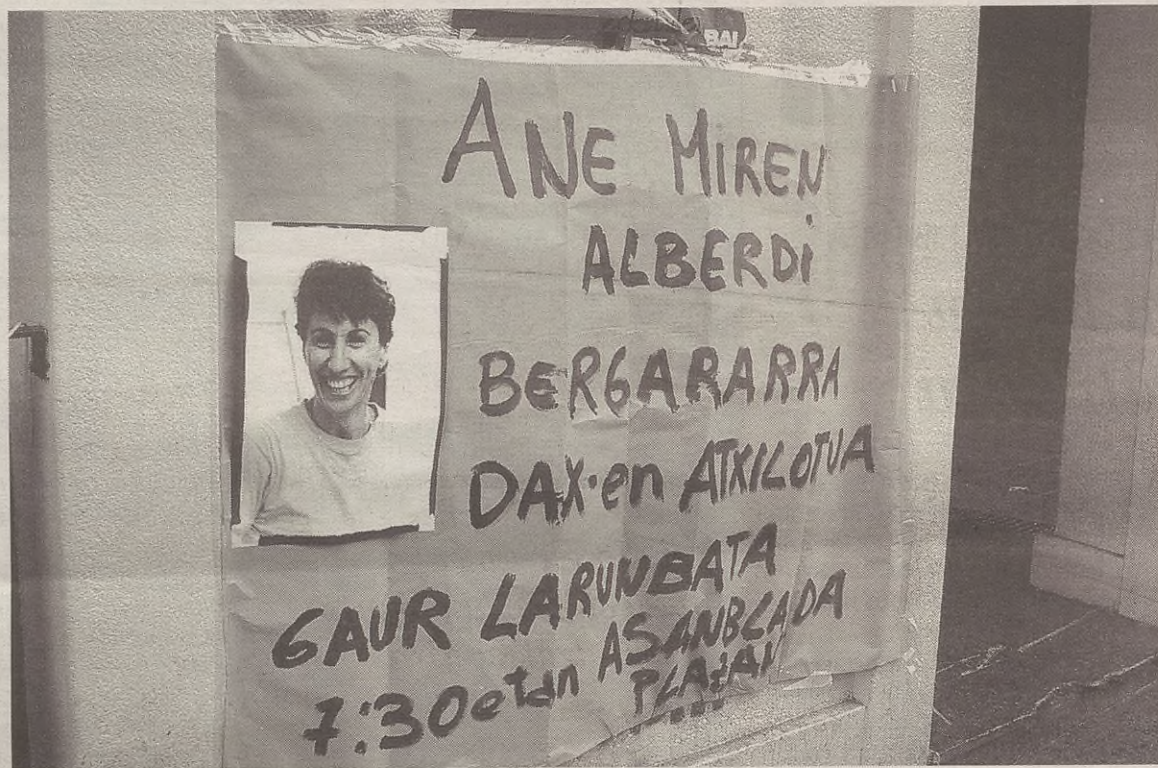 BAI
ANE MIREN
ALBERDi
BERGARARRA
DAX·en ATXILOTUA
GAUR LARUNBATA
7:30etan ASANBLADA
PLAZAN